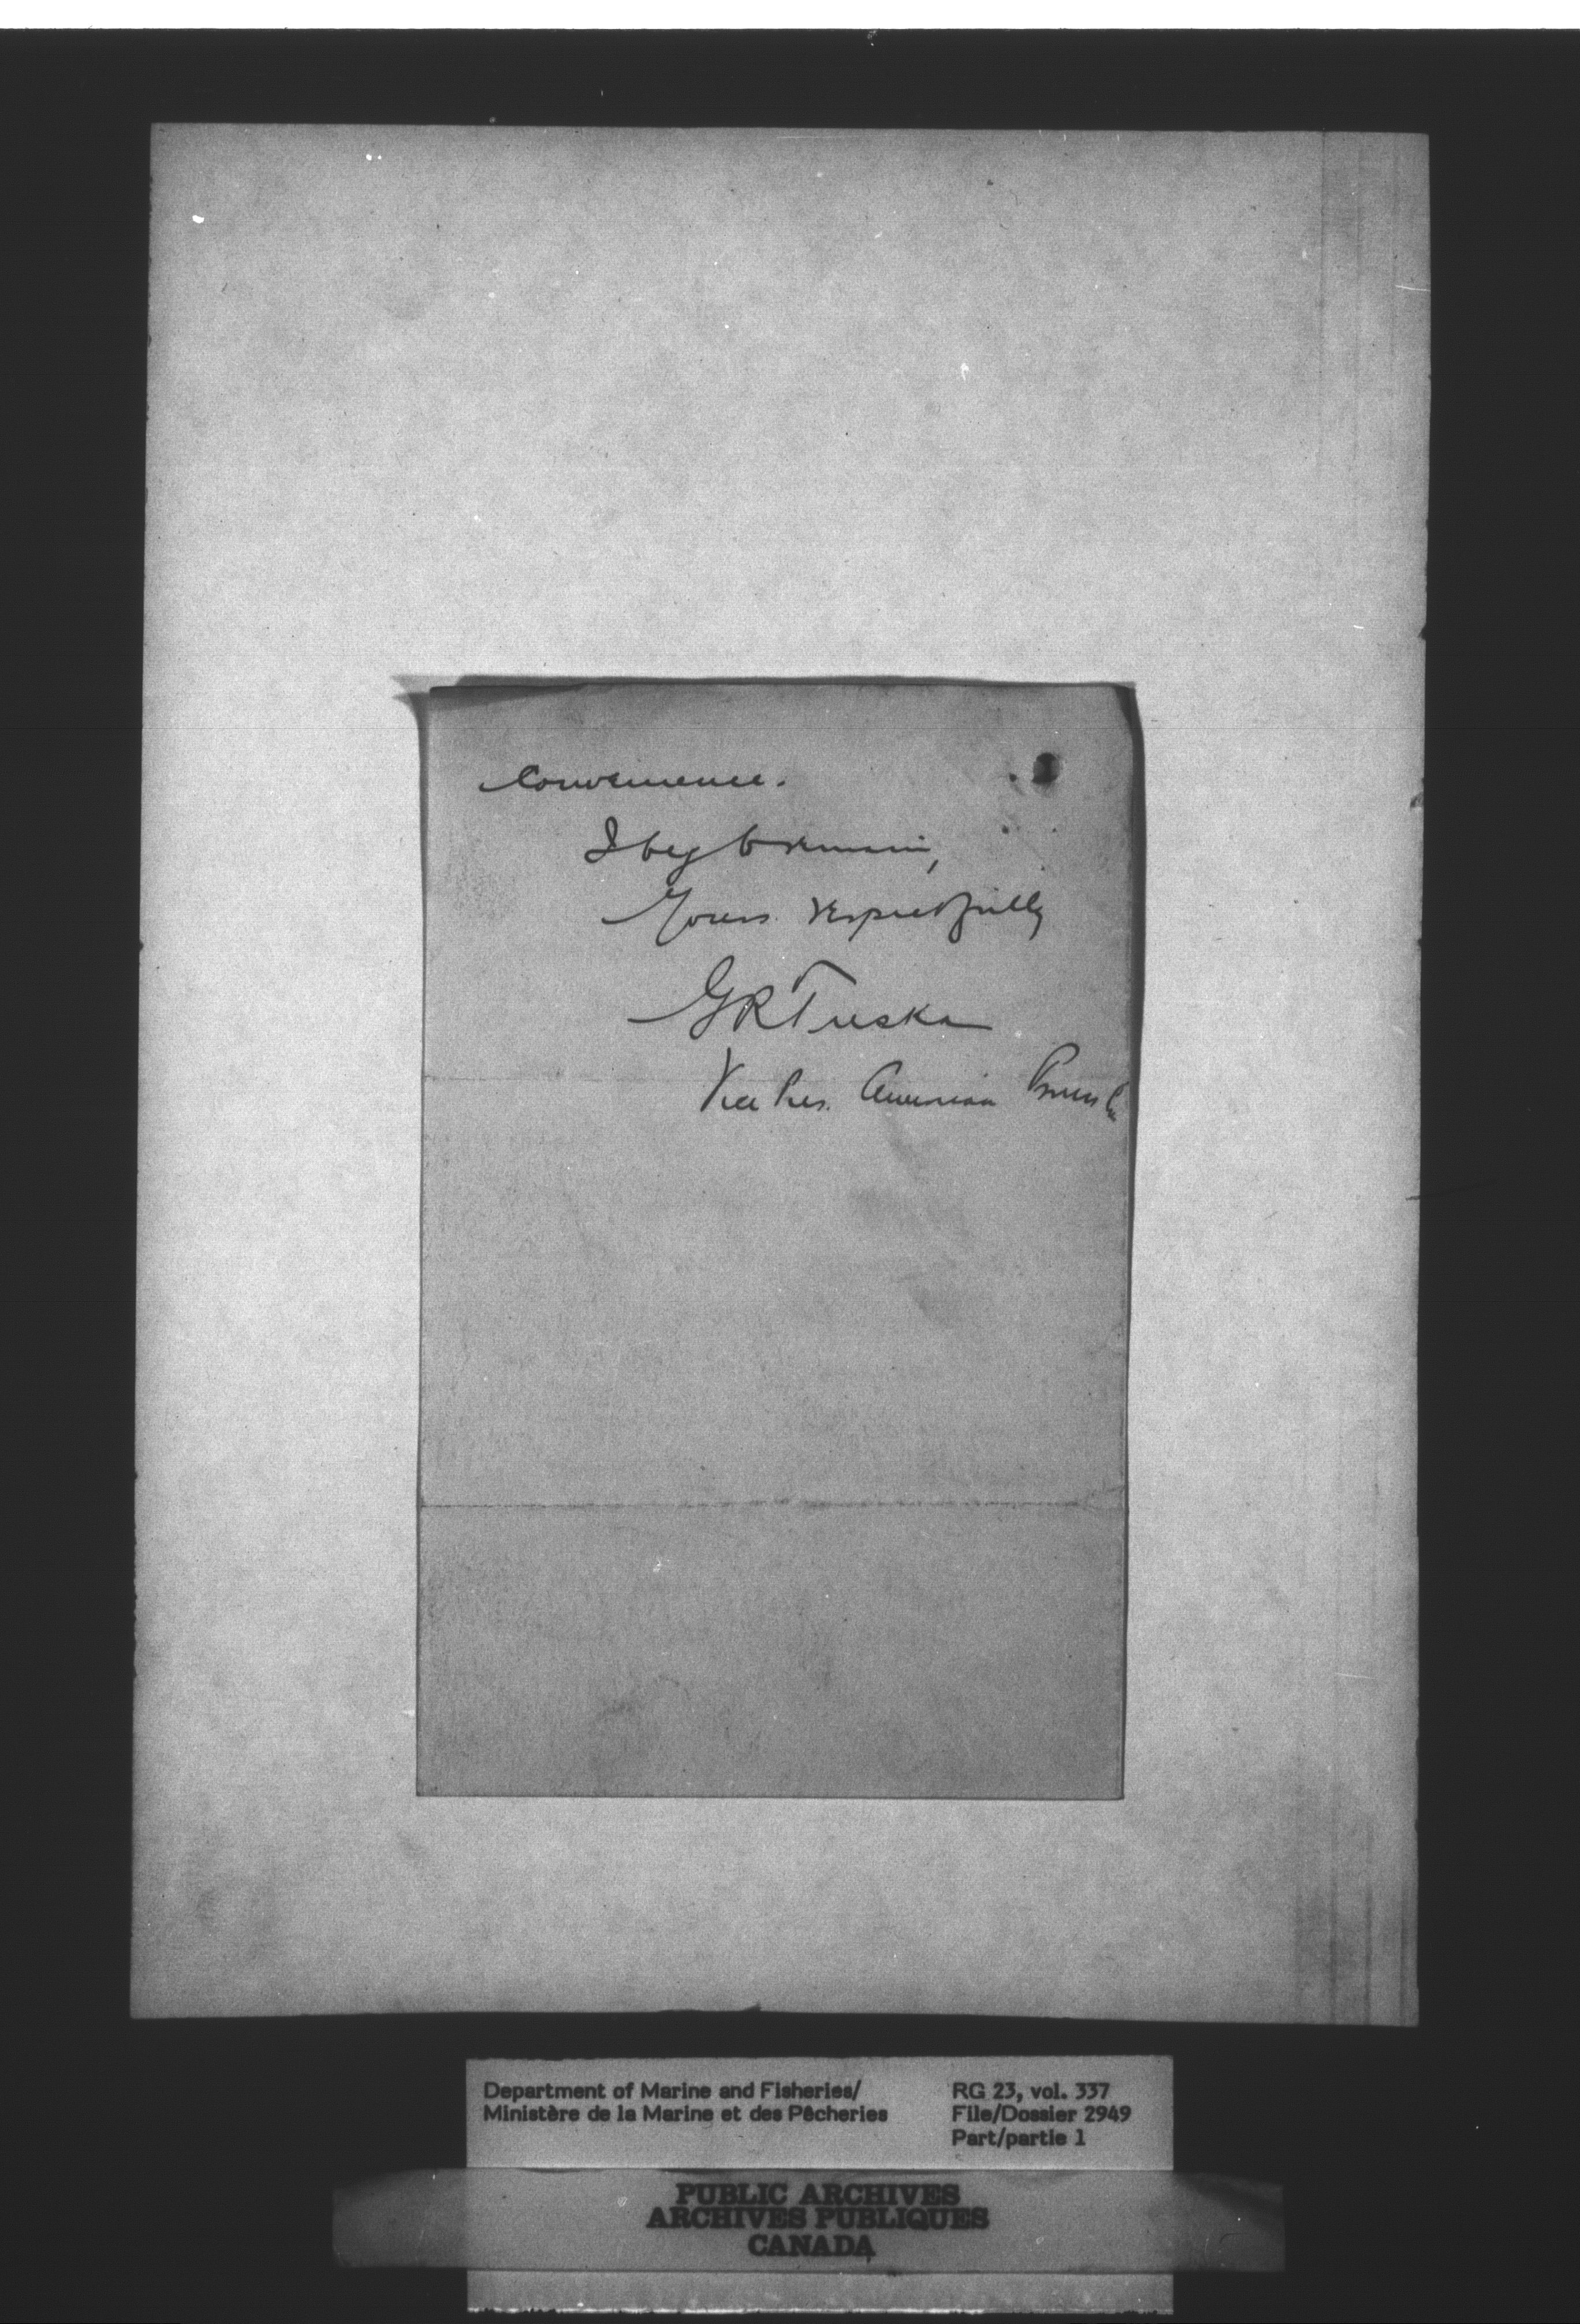 Convenience.
I beg to remain,
Yours respectfully
GRTuska
Vice Pres. American
Department of Marine and Fisheries/
Ministère de la Marine et des Pêcheries
RG 23, vol. 337
File/Dossier 2949
Part/partie 1
PUBLIC ARCHIVES
ARCHIVES PUBLIQUES
CANADA